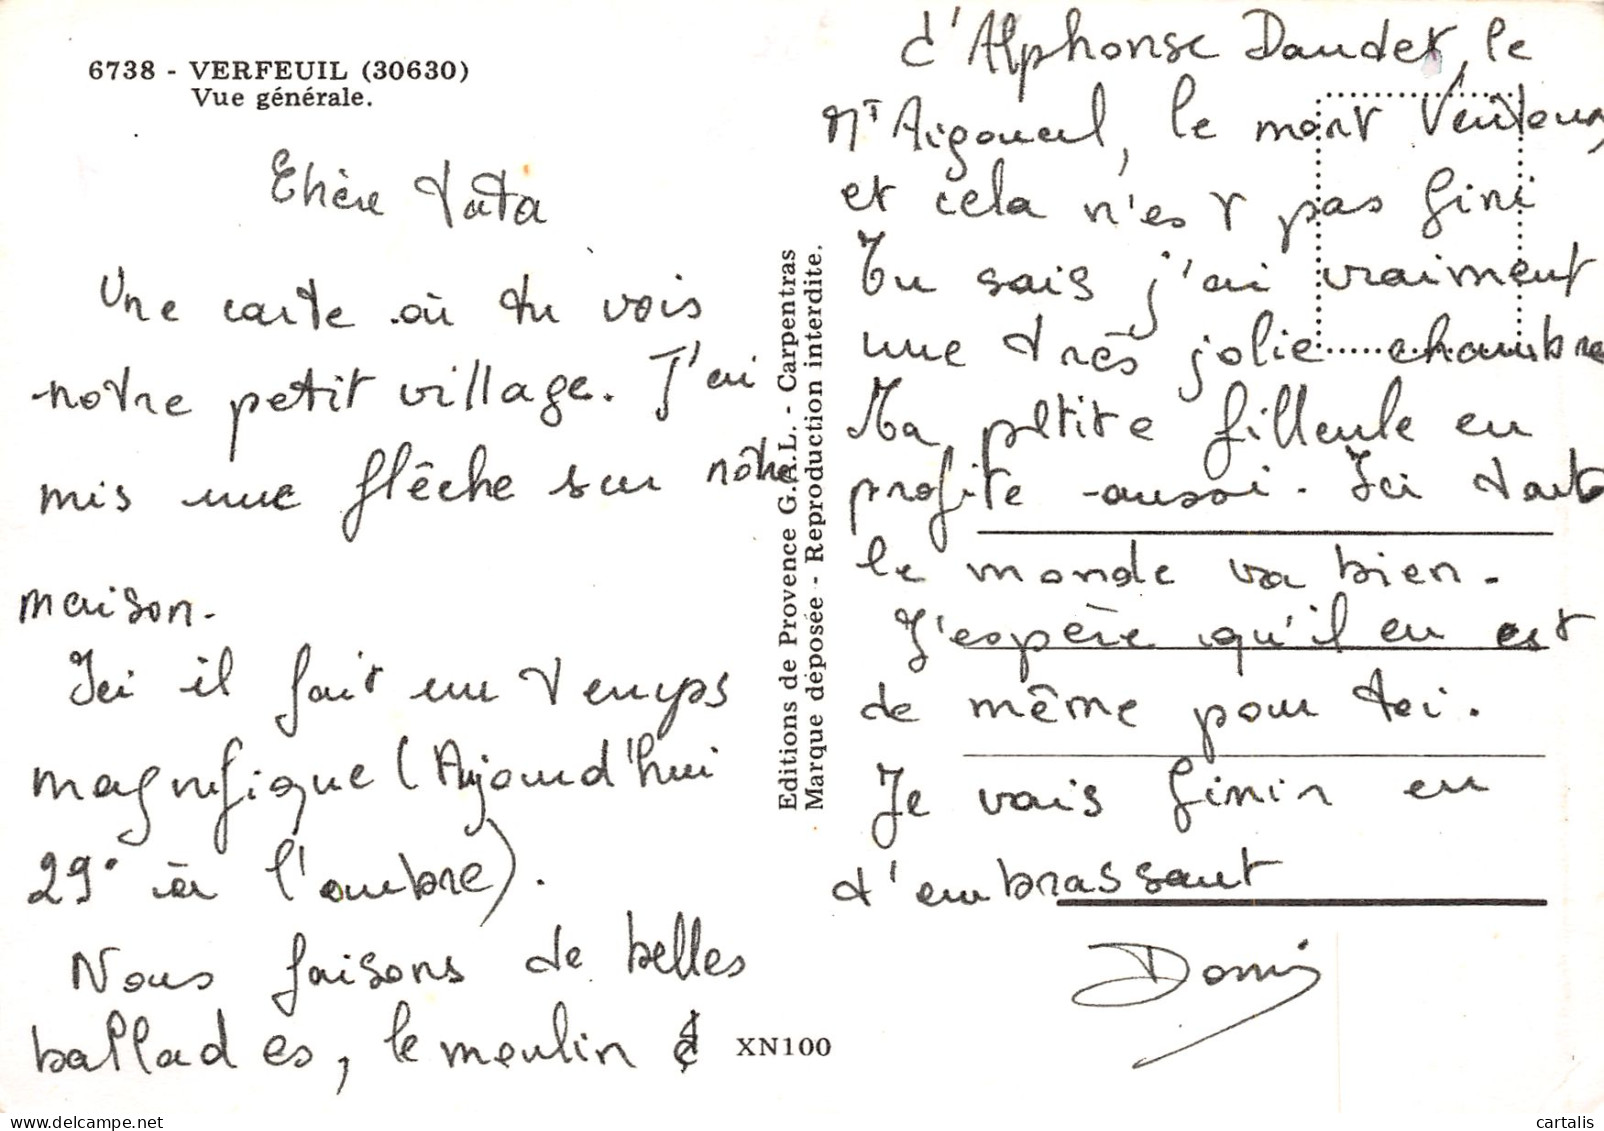 6738 - VERFEUIL (30630)
Vue générale.
Chère tata
Une carte où tu vois
notre petit village. J'ai
mis une flêche sur nôtre
maison.
Ici il fait un temps
magnifique (Aujourd'hui
29° à l'ombre).
Nous faisons de belles
ballades, le moulin
XN100
Editions de Provence G.A.L. - Carpentras
Marque déposée - Reproduction interdite.
d'Alphonse Daudet, le
Mt Aigoual, le mont Ventoux,
et cela n'est pas fini
Tu sais j'ai vraiment
une très jolie chambre
Ma petite filleule en
profite aussi. Ici tout
le monde va bien.
J'espère qu'il en est
de même pour toi.
Je vais finir en
t'embrassant
Domi
cartalis